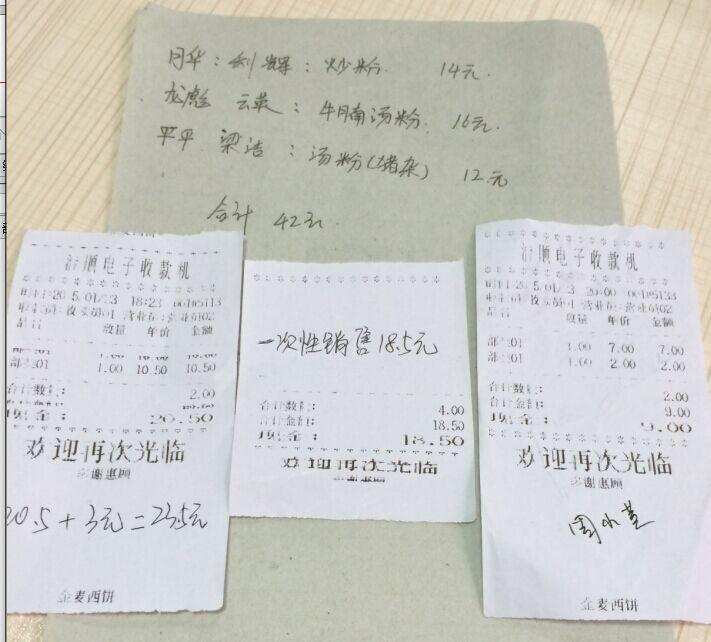 月华：利辉：炒粉 14元
龙彪 云英：牛腩汤粉 16元
平平 梁洁：汤粉(猪杂) 12元
合计 42元
顺电子收款机
18:23 00185133
品名 数量 单价 金额
部类01 1.00 10.00 10.00
部类01 1.00 10.50 10.50
合计数量： 2.00
合计金额： 20.50
现金： 20.50
欢迎再次光临
多谢惠顾
20.5+3元=23.5元
金麦西饼
一次性销售18.5元
合计数量： 4.00
合计金额： 18.50
现金： 18.50
欢迎再次光临
多谢惠顾
顺电子收款机
20:00 00185133
品名 数量 单价 金额
部类01 1.00 7.00 7.00
部类01 1.00 2.00 2.00
合计数量： 2.00
合计金额： 9.00
现金： 9.00
欢迎再次光临
多谢惠顾
金麦西饼